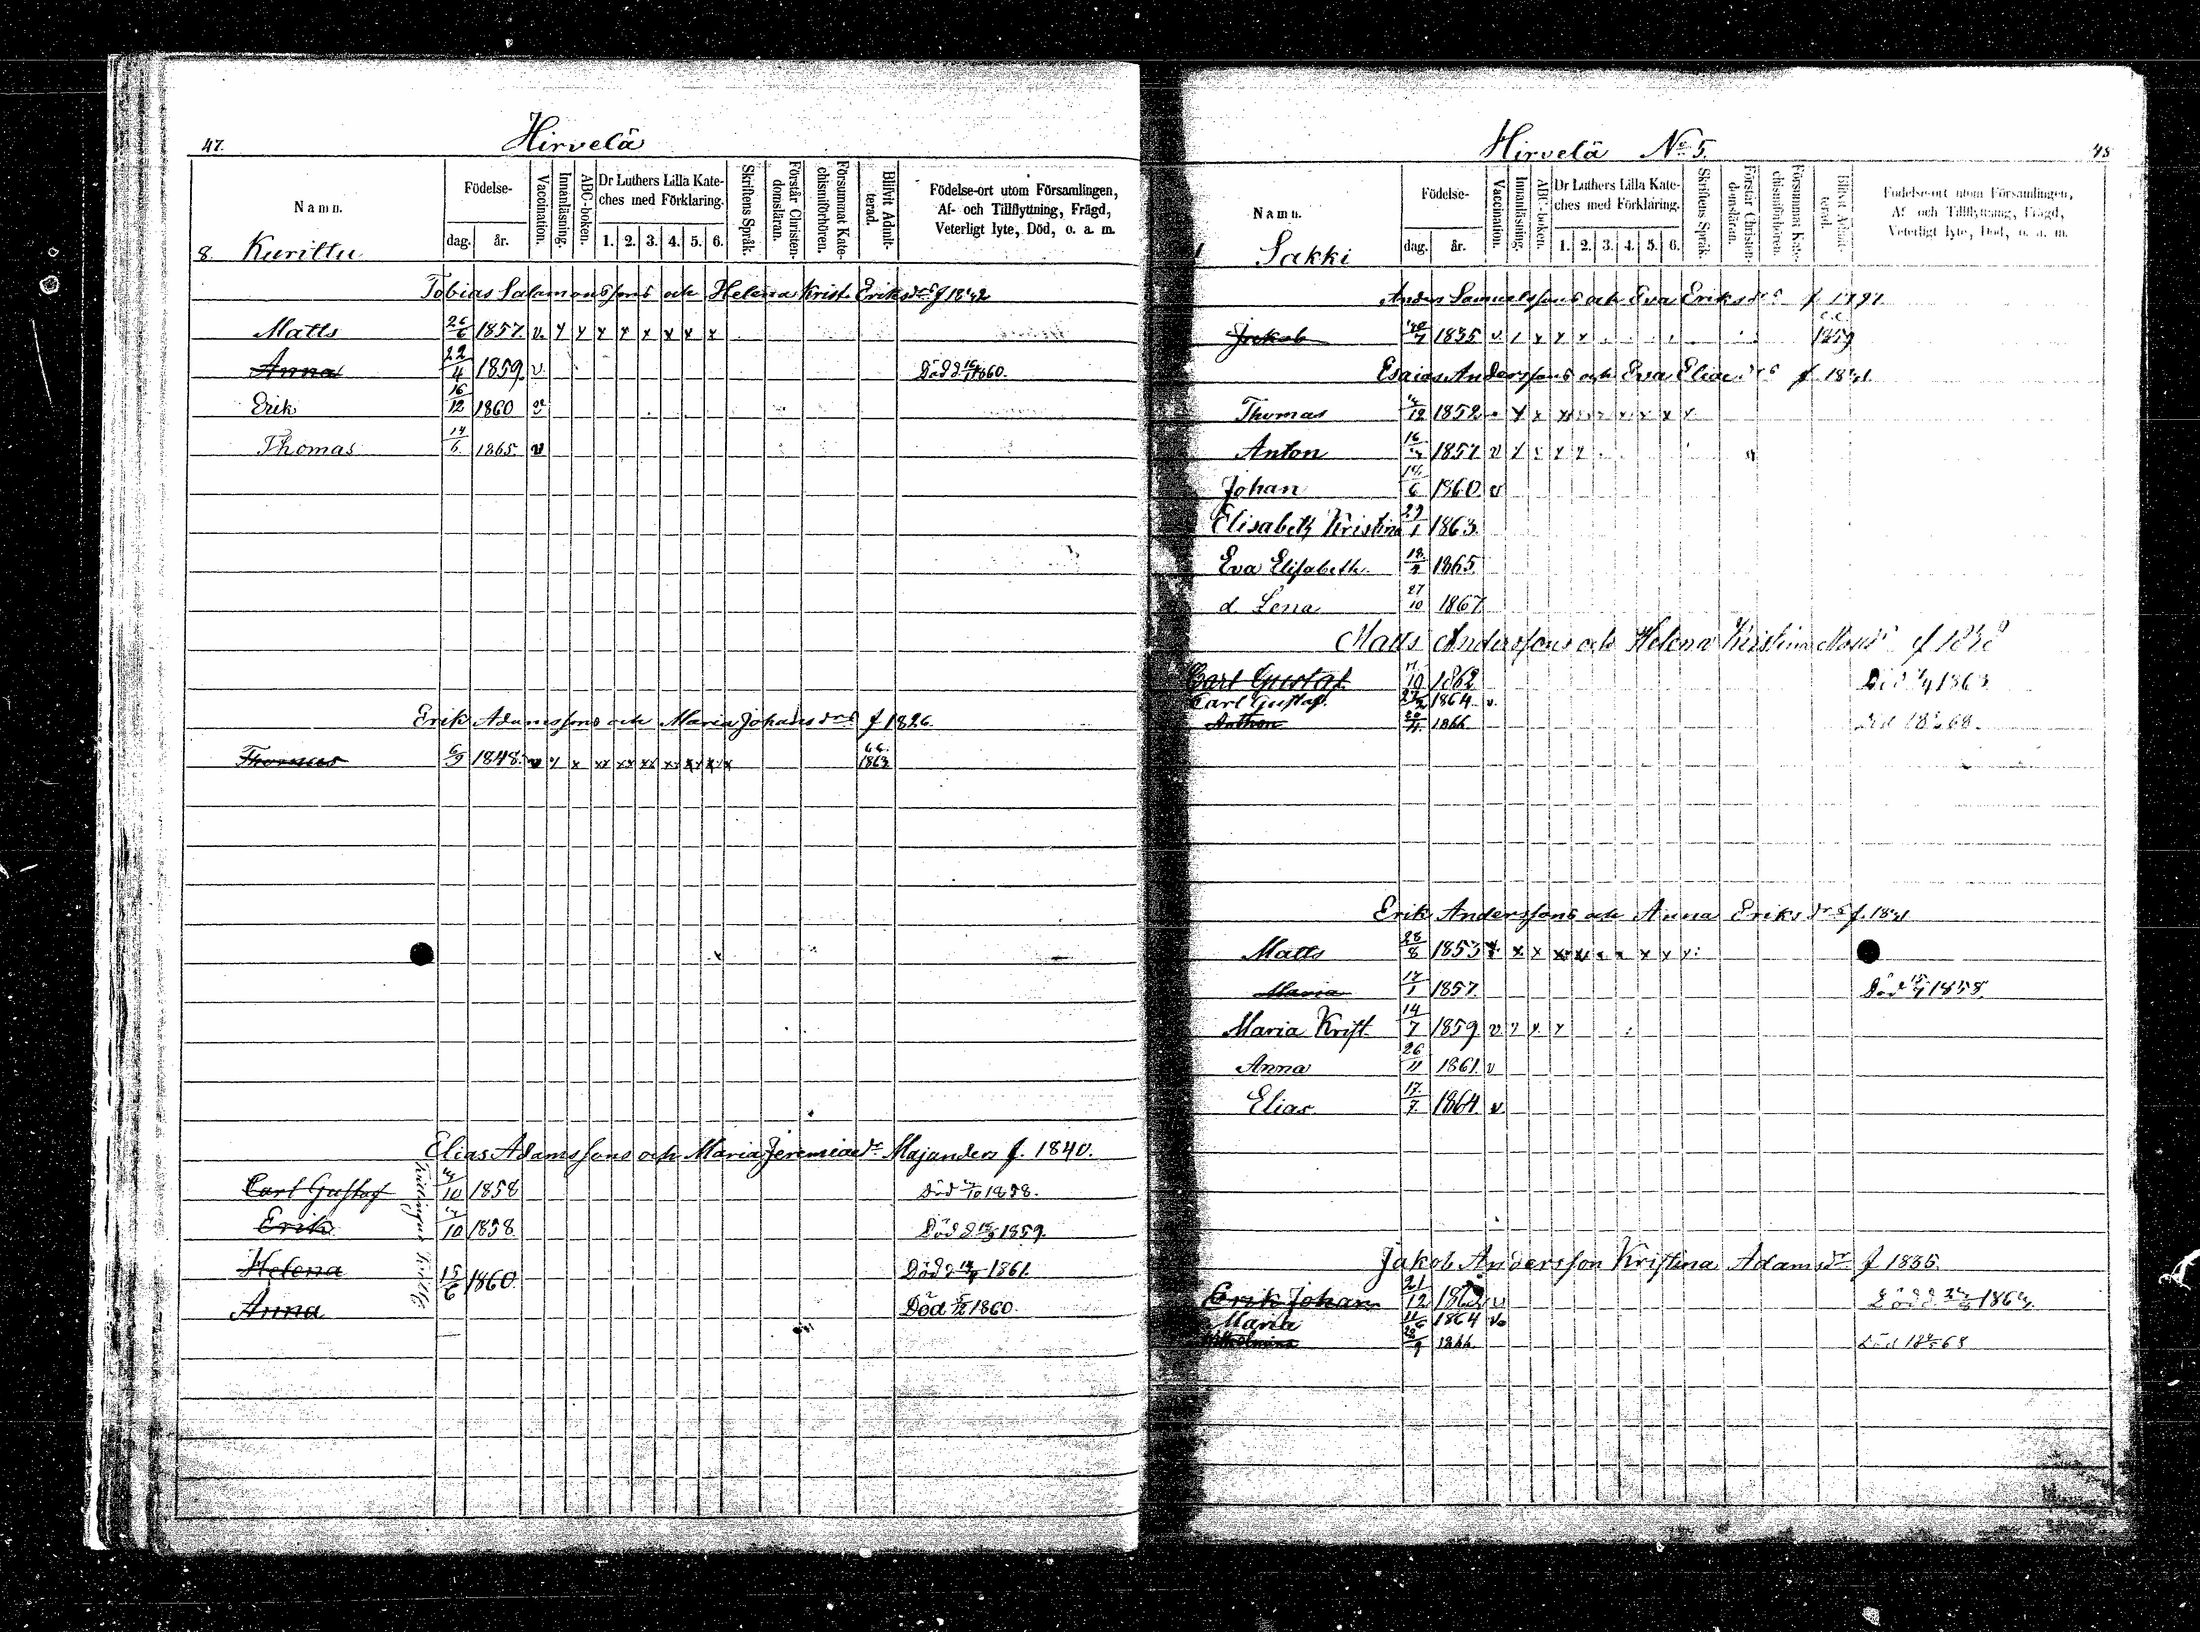 47.
Hirvelä
Namn.
Födelse-
dag. år.
Vaccination.
Innanläsning.
ABC-boken.
Dr Luthers Lilla Kate-
ches med Förklaring.
1. 2. 3. 4. 5. 6.
Skriftens Språk.
Förstår Christen-
domsläran.
Försummat Kate-
chismiförhören.
Blifvit Admit-
terad.
Födelse-ort utom Församlingen,
Af- och Tillflyttning, Frägd,
Veterligt lyte, Död, o. a. m.
8. Kurittu
Tobias Salamonssons och Helena Krist. Eriksdrs f 1832
Matts 26/6 1857. v. x x x x x x x x
Anna 22/4 1859. v Död 1860.
Erik 16/12 1860 v
Thomas 14/6 1865 v
Erik Adamssons och Maria Johansdrs f 1826.
Thomas 6/9 1848. v x x xx xx xx xx xx x x 1863
Elias Adamssons och Maria Jeremiaedr Majanders f. 1840.
Carl Gustaf /10 1858 Död /10 1858.
Erik /10 1858 Död d. 1859.
Helena 15/6 1860. Död d. 1861.
Anna Död 1860.
Hirvelä No 5.
48
Namn.
Födelse-
dag. år.
Vaccination.
Innanläsning.
ABC-boken.
Dr Luthers Lilla Kate-
ches med Förklaring.
1. 2. 3. 4. 5. 6.
Skriftens Språk.
Förstår Christen-
domsläran.
Försummat Kate-
chismiförhören.
Blifvit Admit-
terad.
Födelse-ort utom Församlingen,
Af- och Tillflyttning, Frägd,
Veterligt lyte, Död, o. a. m.
Sakki
Anders Samuelssons och Eva Eriksdrs f. 1797.
Jakob 1835 v x x x 1859
Esaias Anderssons och Eva Eliae drs f. 1831.
Thomas /12 1852 x x
Anton 16/ 1857 v x x x
Johan /6 1860 v
Elisabeth Kristina 29/1 1863.
Eva Elisabeth 18/ 1865
d. Lena 27/10 1867
Matts Anderssons och Helena Kristina f 1838
Carl Gustaf /10 1862 Död 1863
Carl Gustaf. 1864 v.
Anthon 1866 Död 68.
Erik Anderssons och Anna Eriksdrs f. 1831
Matts 28/8 1853 x x
Maria 17/1 1857. Död 1858.
Maria Krist. 14/7 1859 v x x x
Anna 26/11 1861. v
Elias 17/7 1864 v
Jakob Andersson Kristina Adamsdr f 1835.
Erik Johan 21/12 1862 v Död d.
Maria 1864 v.
Wilhelmina /9 1866. Död 68